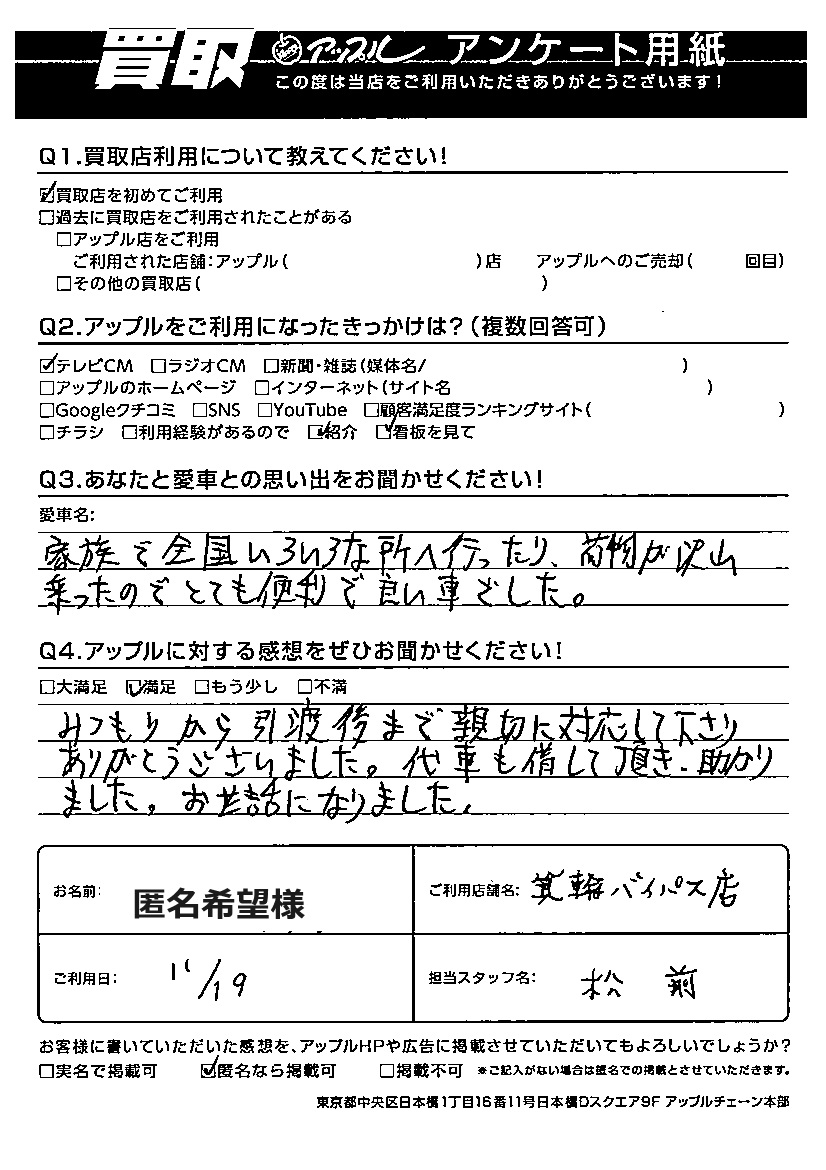 買取 アップル アンケート用紙
この度は当店をご利用いただきありがとうございます!
Q1.買取店利用について教えてください!
☑買取店を初めてご利用
□過去に買取店をご利用されたことがある
□アップル店をご利用
ご利用された店舗:アップル( )店 アップルへのご売却( 回目)
□その他の買取店( )
Q2.アップルをご利用になったきっかけは?(複数回答可)
☑テレビCM □ラジオCM □新聞・雑誌(媒体名/ )
□アップルのホームページ □インターネット(サイト名 )
□Googleクチコミ □SNS □YouTube □顧客満足度ランキングサイト( )
□チラシ □利用経験があるので ☑紹介 ☑看板を見て
Q3.あなたと愛車との思い出をお聞かせください!
愛車名:
家族で全国いろいろな所へ行ったり、荷物が沢山
乗ったのでとても便利で良い車でした。
Q4.アップルに対する感想をぜひお聞かせください!
□大満足 ☑満足 □もう少し □不満
みつもりから引渡後まで親切に対応して下さり
ありがとうございました。代車も借して頂き、助かり
ました。お世話になりました。
お名前: 匿名希望様
ご利用店舗名: 箕輪バイパス店
ご利用日: 11/19
担当スタッフ名: 松前
お客様に書いていただいた感想を、アップルHPや広告に掲載させていただいてもよろしいでしょうか?
□実名で掲載可 ☑匿名なら掲載可 □掲載不可 ※ご記入がない場合は匿名での掲載とさせていただきます。
東京都中央区日本橋1丁目16番11号日本橋Dスクエア9F アップルチェーン本部